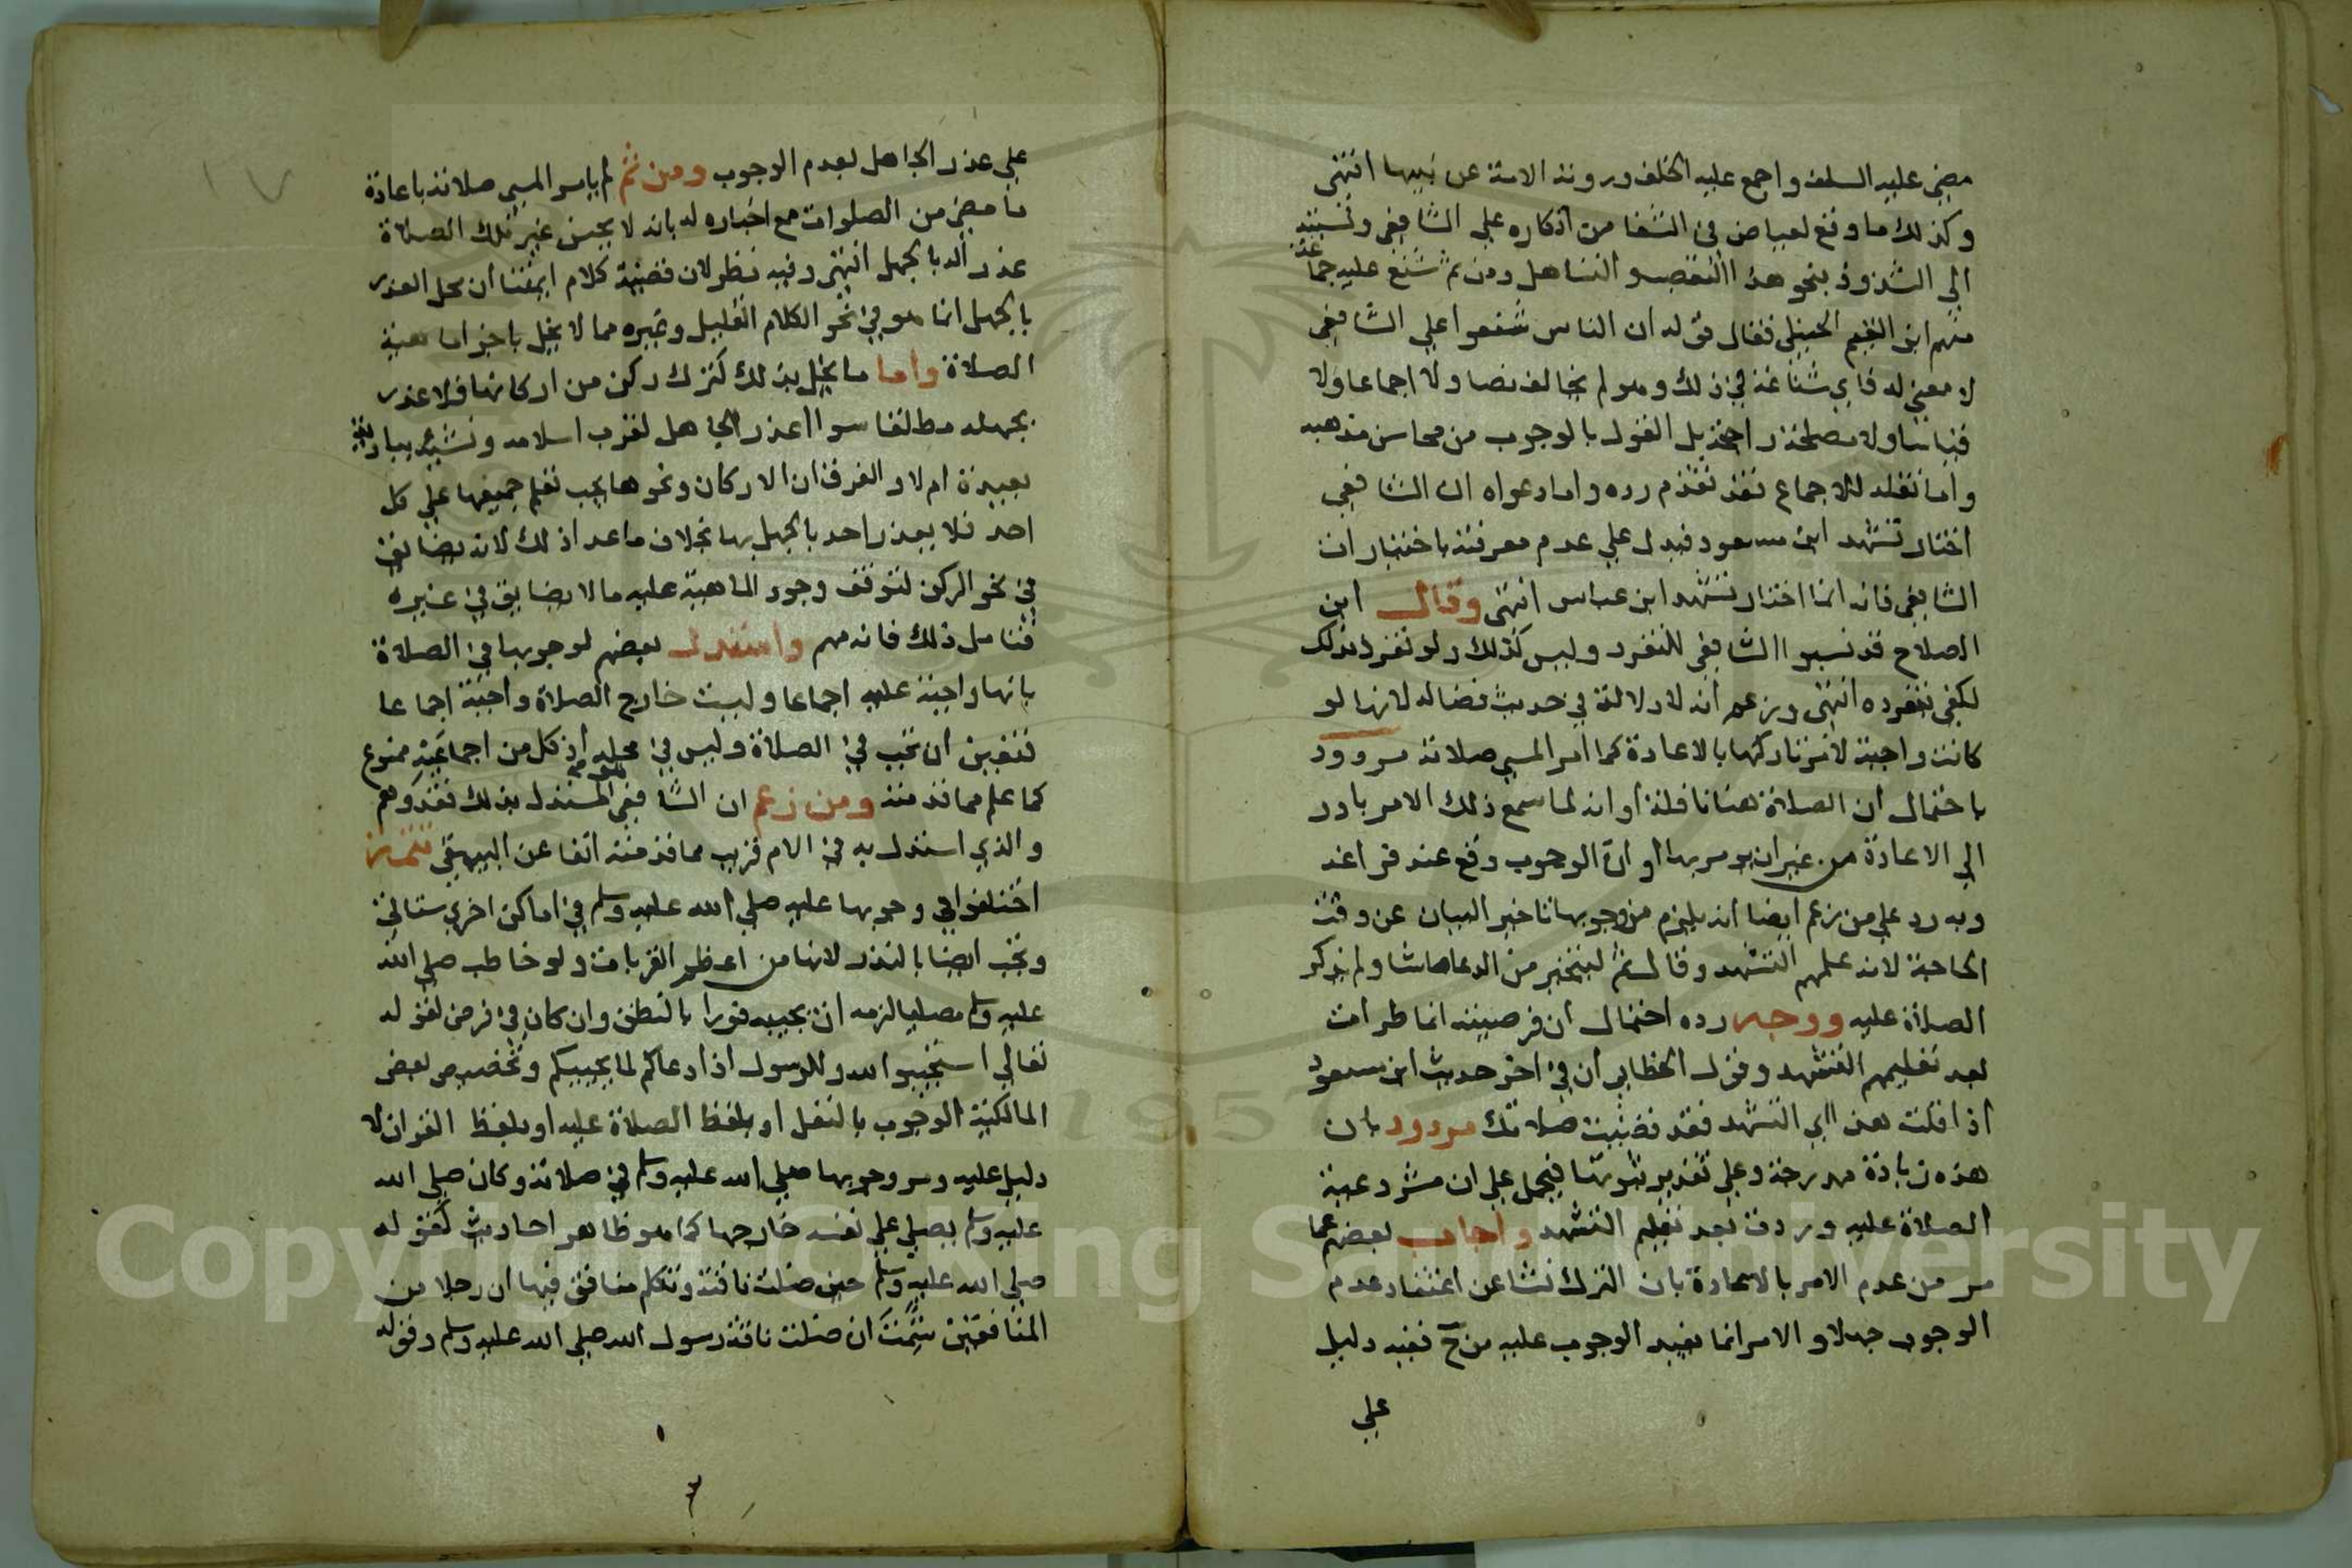 مضى عليه السلف واجمع عليه الخلف وروته الامة عن نبيها انتهى
وكذلك ما وقع لعياض في الشفا من انكاره على الشافعي ونسبته
الى الشذوذ بنحو هذا التعصب والتساهل ومن ثم شنع عليه جماعة
منهم ابن القيم الحنبلي فقال قوله ان الناس شنعوا على الشافعي
لا معنى له فاي شناعة في ذلك وهو لم يخالف نصا ولا اجماعا ولا
قياسا ولا مصلحة راجحة بل القول بالوجوب من محاسن مذهبه
واما نقله للاجماع فقد تقدم رده واما دعواه ان الشافعي
اختار تشهد ابن مسعود فيدل على عدم معرفته باختيارات
الشافعي فانه انما اختار تشهد ابن عباس انتهى وقال ابن
الصلاح قد نسبوا الشافعي للتفرد وليس كذلك ولو تفرد بذلك
لكفي تفرده انتهى وزعم انه لا دلالة في حديث فضالة لانها لو
كانت واجبة لامر تاركها بالاعادة كما امر المسي صلاته مردود
باحتمال ان الصلاة هنا نافلة او انه لما سمع ذلك الامر بادر
الى الاعادة من غير ان يومر بها او ان الوجوب وقع عند فراغه
وبه رد على من زعم ايضا انه يلزم من وجوبها تاخير البيان عن وقت
الحاجة لانه علمهم التشهد وقال ثم ليتخير من الدعا ما شا ولم يذكر
الصلاة عليه ووجه رده احتمال ان فرضيته انما طرات
بعد تعليمهم التشهد وقول الخطابي ان في اخر حديث ابن مسعود
اذا قلت هذا اي التشهد فقد قضيت صلاتك مردود بان
هذه زيادة مدرجة وعلى تقدير ثبوتها فيحمل على ان مشروعية
الصلاة عليه وردت بعد تعليم التشهد واجاب بعضهم عما
مر من عدم الامر بالاعادة بان الترك نشا عن اعتقاد عدم
الوجوب جهلا والامر انما يفيد الوجوب عليه من ح ففيه دليل
على
على عذر الجاهل بعدم الوجوب ومن ثم لم يامر المسي صلاته باعادة
ما مضى من الصلوات مع اخباره له بانه لا يحسن غير تلك الصلاة
عذرا له بالجهل انتهى وفيه نظر لان قضية كلام ايمتنا ان محل العذر
بالجهل انما هو في نحو الكلام القليل وغيره مما لا يخل باجزا ماهية
الصلاة واما ما يخل بذلك كترك ركن من اركانها فلا عذر
بجهله مطلقا سوا اعذر الجاهل لقرب اسلامه ونشئه ببادية
بعيدة ام لا والفرق ان الاركان ونحوها يجب تعلم جميعها على كل
احد فلا يعذر احد بالجهل بها بخلاف ما عدا ذلك لانه يضايق
في نحو الركن لتوقف وجود الماهية عليه ما لا يضايق في غيره
فتامل ذلك فانه مهم واستدل بعضهم لوجوبها في الصلاة
بانها واجبة عليه اجماعا وليست خارج الصلاة واجبة اجماعا
فتعين ان تجب في الصلاة وليس في محله اذ كل من اجماعيه ممنوع
كما علم مما قدمته ومن زعم ان الشافعي المستدل بذلك فقد وهم
والذي استدل به في الام قريب مما قدمته انفا عن البيهقي تتمة
اختلفوا في وجوبها عليه صلى الله عليه وسلم في اماكن اخرى ستاتي
وتجب ايضا بالنذر لانها من اعظم القربات ولو خاطب صلى الله
عليه وسلم مصليا لزمه ان يجيبه فورا بالنطق وان كان في فرض لقوله
تعالى استجيبوا لله وللرسول اذا دعاكم لما يحييكم وتخصيص بعض
المالكية الوجوب بالنفل او بلفظ الصلاة عليه او بلفظ القران لا
دليل عليه ومر وجوبها صلى الله عليه وسلم في صلاته وكان صلى الله
عليه وسلم يصلي على نفسه خارجها كما هو ظاهر احاديث كقوله
صلى الله عليه وسلم حين ضلت ناقته وتكلم منافق فيها ان رجلا من
المنافقين شمت ان ضلت ناقة رسول الله صلى الله عليه وسلم وقوله
Copyright © King Saud University
1957